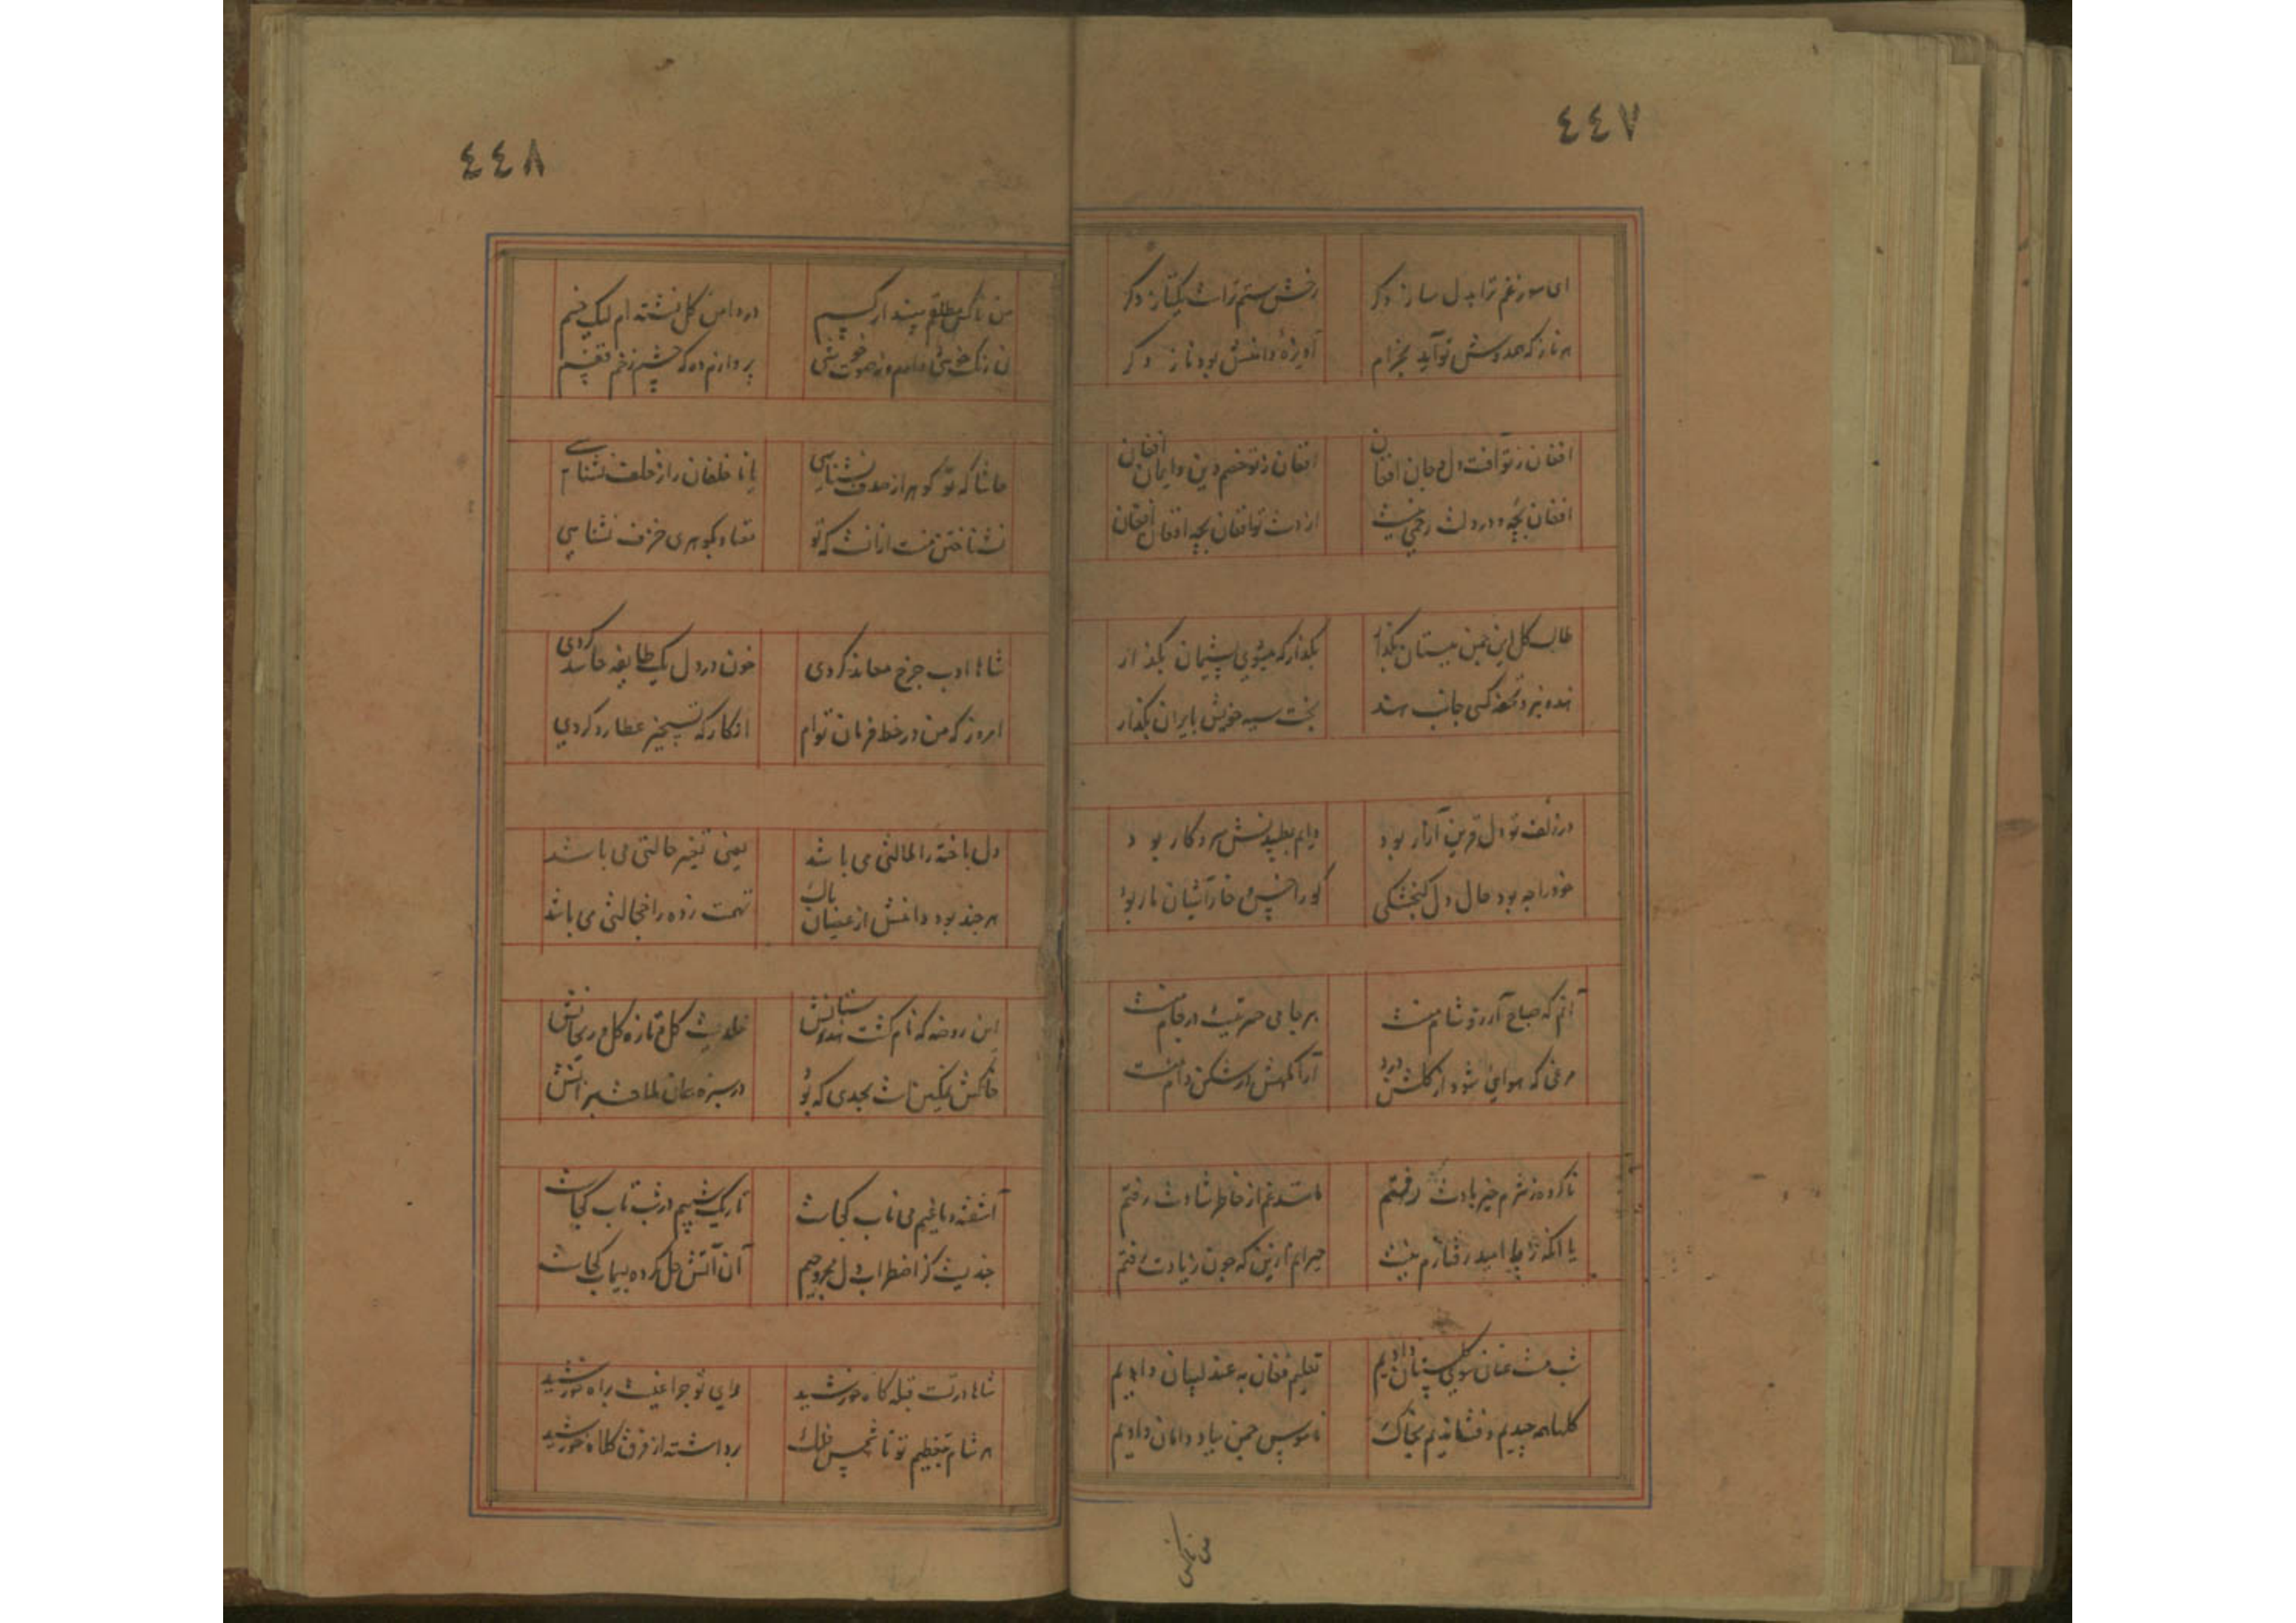 ٤٤٧
ای سوز غم ترا بدل ساز دگر
رخش ستم تراست یکتاز دگر
هر ناز که همدوش تو آید بخرام
آویزهٔ دامنش بود ناز دگر
افغان ز تو آفت دل و جان افغان
افغان ز تو خصم دین و ایمان افغان
افغان بچه و در دلت رحمی نیست
از دست تو افغان بچه افغان افغان
طالب گل این چمن ببستان بگذار
بگذار که میشوی پشیمان بگذار
هندو نبرد تحفه کسی جانب هند
بخت سیه خویش بایران بگذار
در زلف تو دل قرین آزار بود
دایم بطپیدنش سر و کار بود
خود را چه بود حال دل گنجشکی
کو را خس و خار آشیان مار بود
آنم که صباح آرزو شام منست
بر جا می حسرتیست در جام منست
مرغی که هوایی شود از گلشن درد
آرامگهش در شکن دام منست
ناکرده ز شرم خیربادت رفتم
ماننده غم از خاطر شادت رفتم
با آنکه ز پا امید رفتارم نیست
حیرانم ازین که چون ز یادت رفتم
شب مست عنان سوی گلستان دادیم
تعلیم فغان به عندلیبان دادیم
گلها همه چیدیم و فشاندیم بخاک
ناموس چمن بباد دامان دادیم
من ناکس
٤٤٨
من ناکس مطلقم مپندار کسیم
در دامن گل نشسته ام لیک خسیم
نی رنگ خوشی دارم و نه صوت خوشی
پردازم ده که چشم زخم قفسیم
حاشا که تو گوهر از صدف نشناسی
یا ناخلفان را از خلف نشناسی
نشناختن منت ازانست که تو
معتاد بگوهری خزف نشناسی
شاها ادب چرخ معاند کردی
خون در دل یک طایفه حاسد کردی
امروز که من در خط فرمان توام
انگار که تسخیر عطارد کردی
دل باخته را ملالتی می باشد
یعنی تغیر حالتی می باشد
هر چند بود دامنش از عصیان پاک
تهمت زده را خجالتی می باشد
این روضه که نام گشت هندوستانش
خلدیست گل و تازه گل و ریحانش
خاکش نمکین است بحدی که بود
در سبزه عیان ملاحت سبزانش
آشفته دماغیم می ناب کجاست
تاریک شبیم در شب تاب کجاست
چندیست کز اضطراب دل مجروحیم
آن آتش حل کرده سیماب کجاست
شاها درت قبله گاه خورشید
برداشته از فرق کلاه خورشید
هر شام بتعظیم تو تا شمس فلک